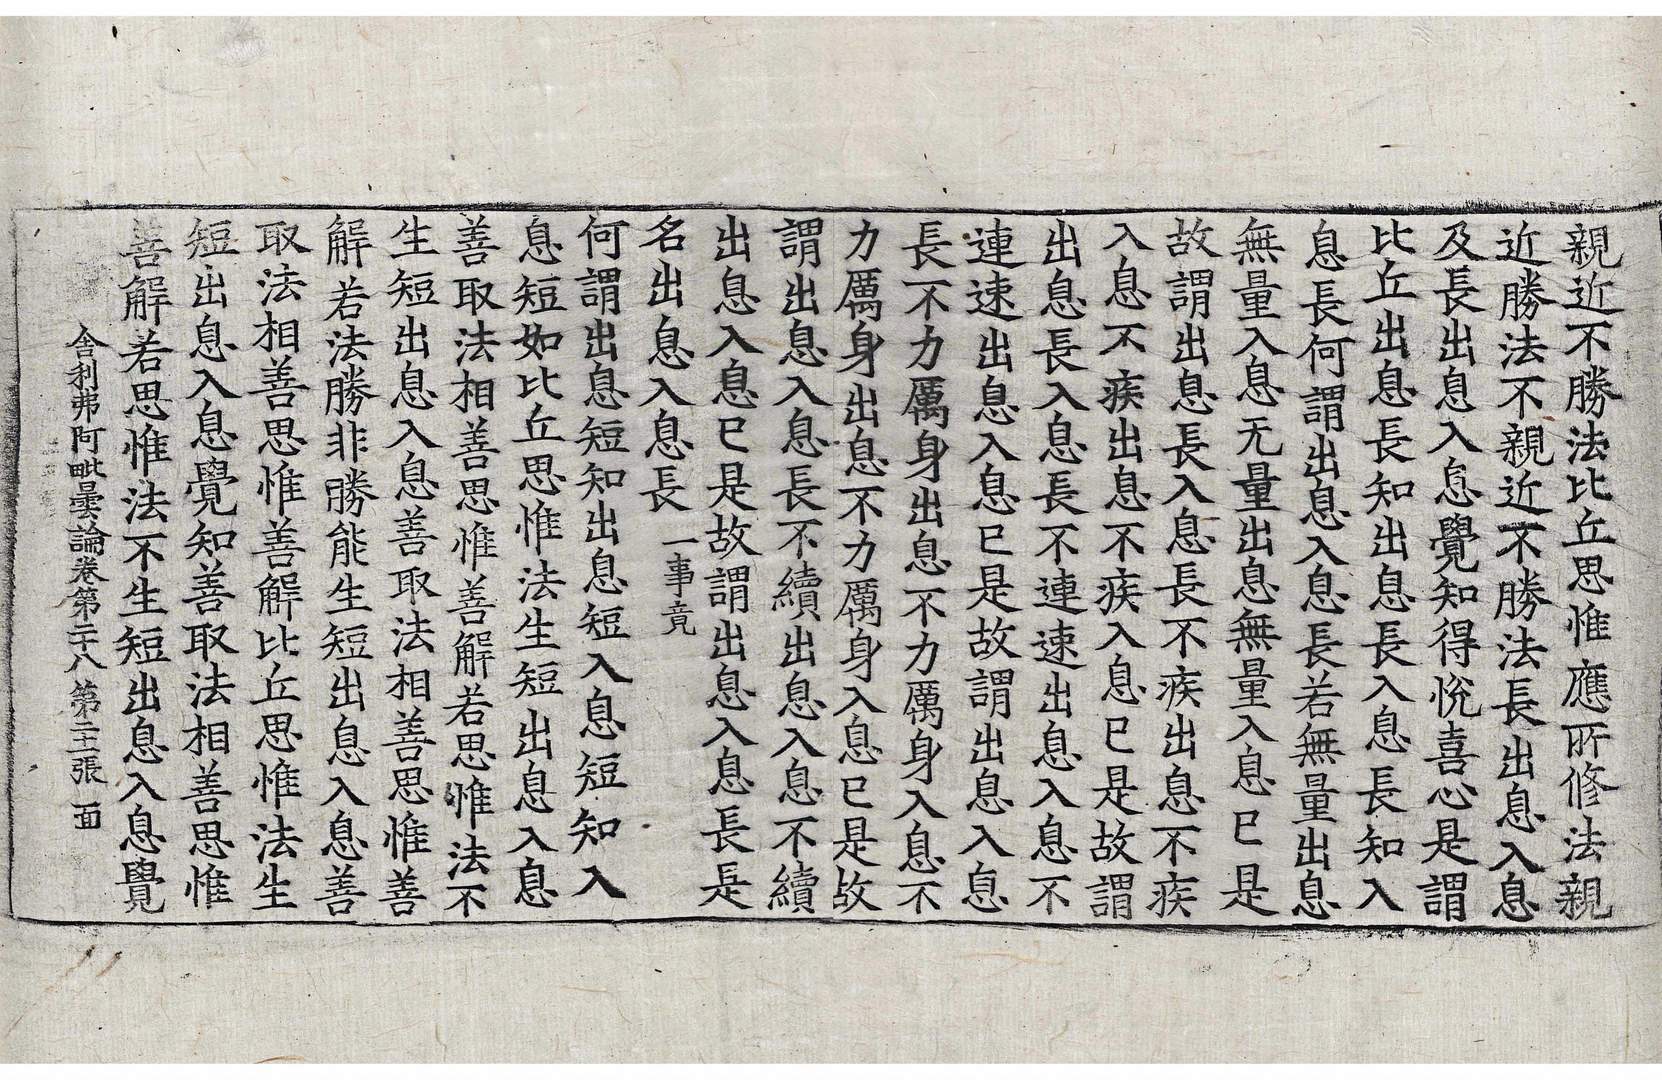 親近不勝法比丘思惟應所修法親
近勝法不親近不勝法長出息入息
及長出息入息覺知得悅喜心是謂
比丘出息長知出息長入息長知入
息長何謂出息入息長若無量出息
無量入息无量出息無量入息已是
故謂出息長入息長不疾出息不疾
入息不疾出息不疾入息已是故謂
出息長入息長不連速出息入息不
連速出息入息已是故謂出息入息
長不力厲身出息不力厲身入息不
力厲身出息不力厲身入息已是故
謂出息入息長不續出息入息不續
出息入息已是故謂出息入息長是
名出息入息長一事竟
何謂出息短知出息短入息短知入
息短如比丘思惟法生短出息入息
善取法相善思惟善解若思惟法不
生短出息入息善取法相善思惟善
解若法勝非勝能生短出息入息善
取法相善思惟善解比丘思惟法生
短出息入息覺知善取法相善思惟
善解若思惟法不生短出息入息覺
舍利弗阿毗曇論卷第二十八 第二十二張 面